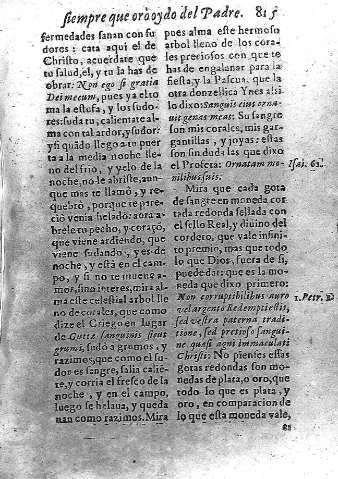 siempre que orò oydo del Padre. 815
fermedades sanan con su
dores: cata aqui el de
Christo, acuerdate que
tu salud, el, y tu la has de
obrar: Non ego si gratia
Dei mecum, pues ya el to
ma la estufa, y los sudo-
res: suda tu, calientate al
ma con tal ardor, y sudor:
y si quãdo llego a tu puer
ta a la media noche lle-
no del frio, y yelo de la
noche, no le abriste, aun-
que mas te llamò, y re-
quebrò, porque te pare-
ciò venia helado: aora a-
brele tu pecho, y coraçõ,
que viene ardiendo, que
viene sudando, y es de
noche, y està en el cam-
po, y si no te mueve a-
mor, sino interes, mira al
ma este celestial arbol lle
no de corales, que como
dize el Griego en lugar
de Guttæ sanguinis sicut
grumi, sudò a grumos, y
razimos, que como el su-
dor es sangre, salia calie-
te, y corria el fresco de la
noche, y en el campo,
luego se helaua, y queda
uan como razimos. Mira
pues alma este hermoso
arbol lleno de los cora-
les preciosos con que te
has de engalanar para la
fiesta, y la Pascua. que la
otra donzellica Ynes assi
lo dixo: Sanguis eius ornauit
genas meas: Su sangre
son mis corales, mis gar-
gantillas, y joyas: estas
son sin duda las que dixo
el Profeta: Ornatam mo-
nilibus suis.
Isai. 61.
Mira que cada gota
de sangre es moneda cor
tada redonda sellada con
el sello Real, y diuino del
cordero, que vale infini-
to premio, mas que todo
lo que Dios, fuera de si,
puede dar: que es la mo-
neda que dixo primero:
Non corruptibilibus auro
vel argento Redempti estis,
sed vestra paterna tradi-
tione, sed pretioso sangui-
ne quasi agni immaculati
Christi: No pienses essas
1. Petr.
gotas redondas son mo-
nedas de plata, o oro, que
todo lo que es plata, y
oro, en comparacion de
lo que esta moneda vale,